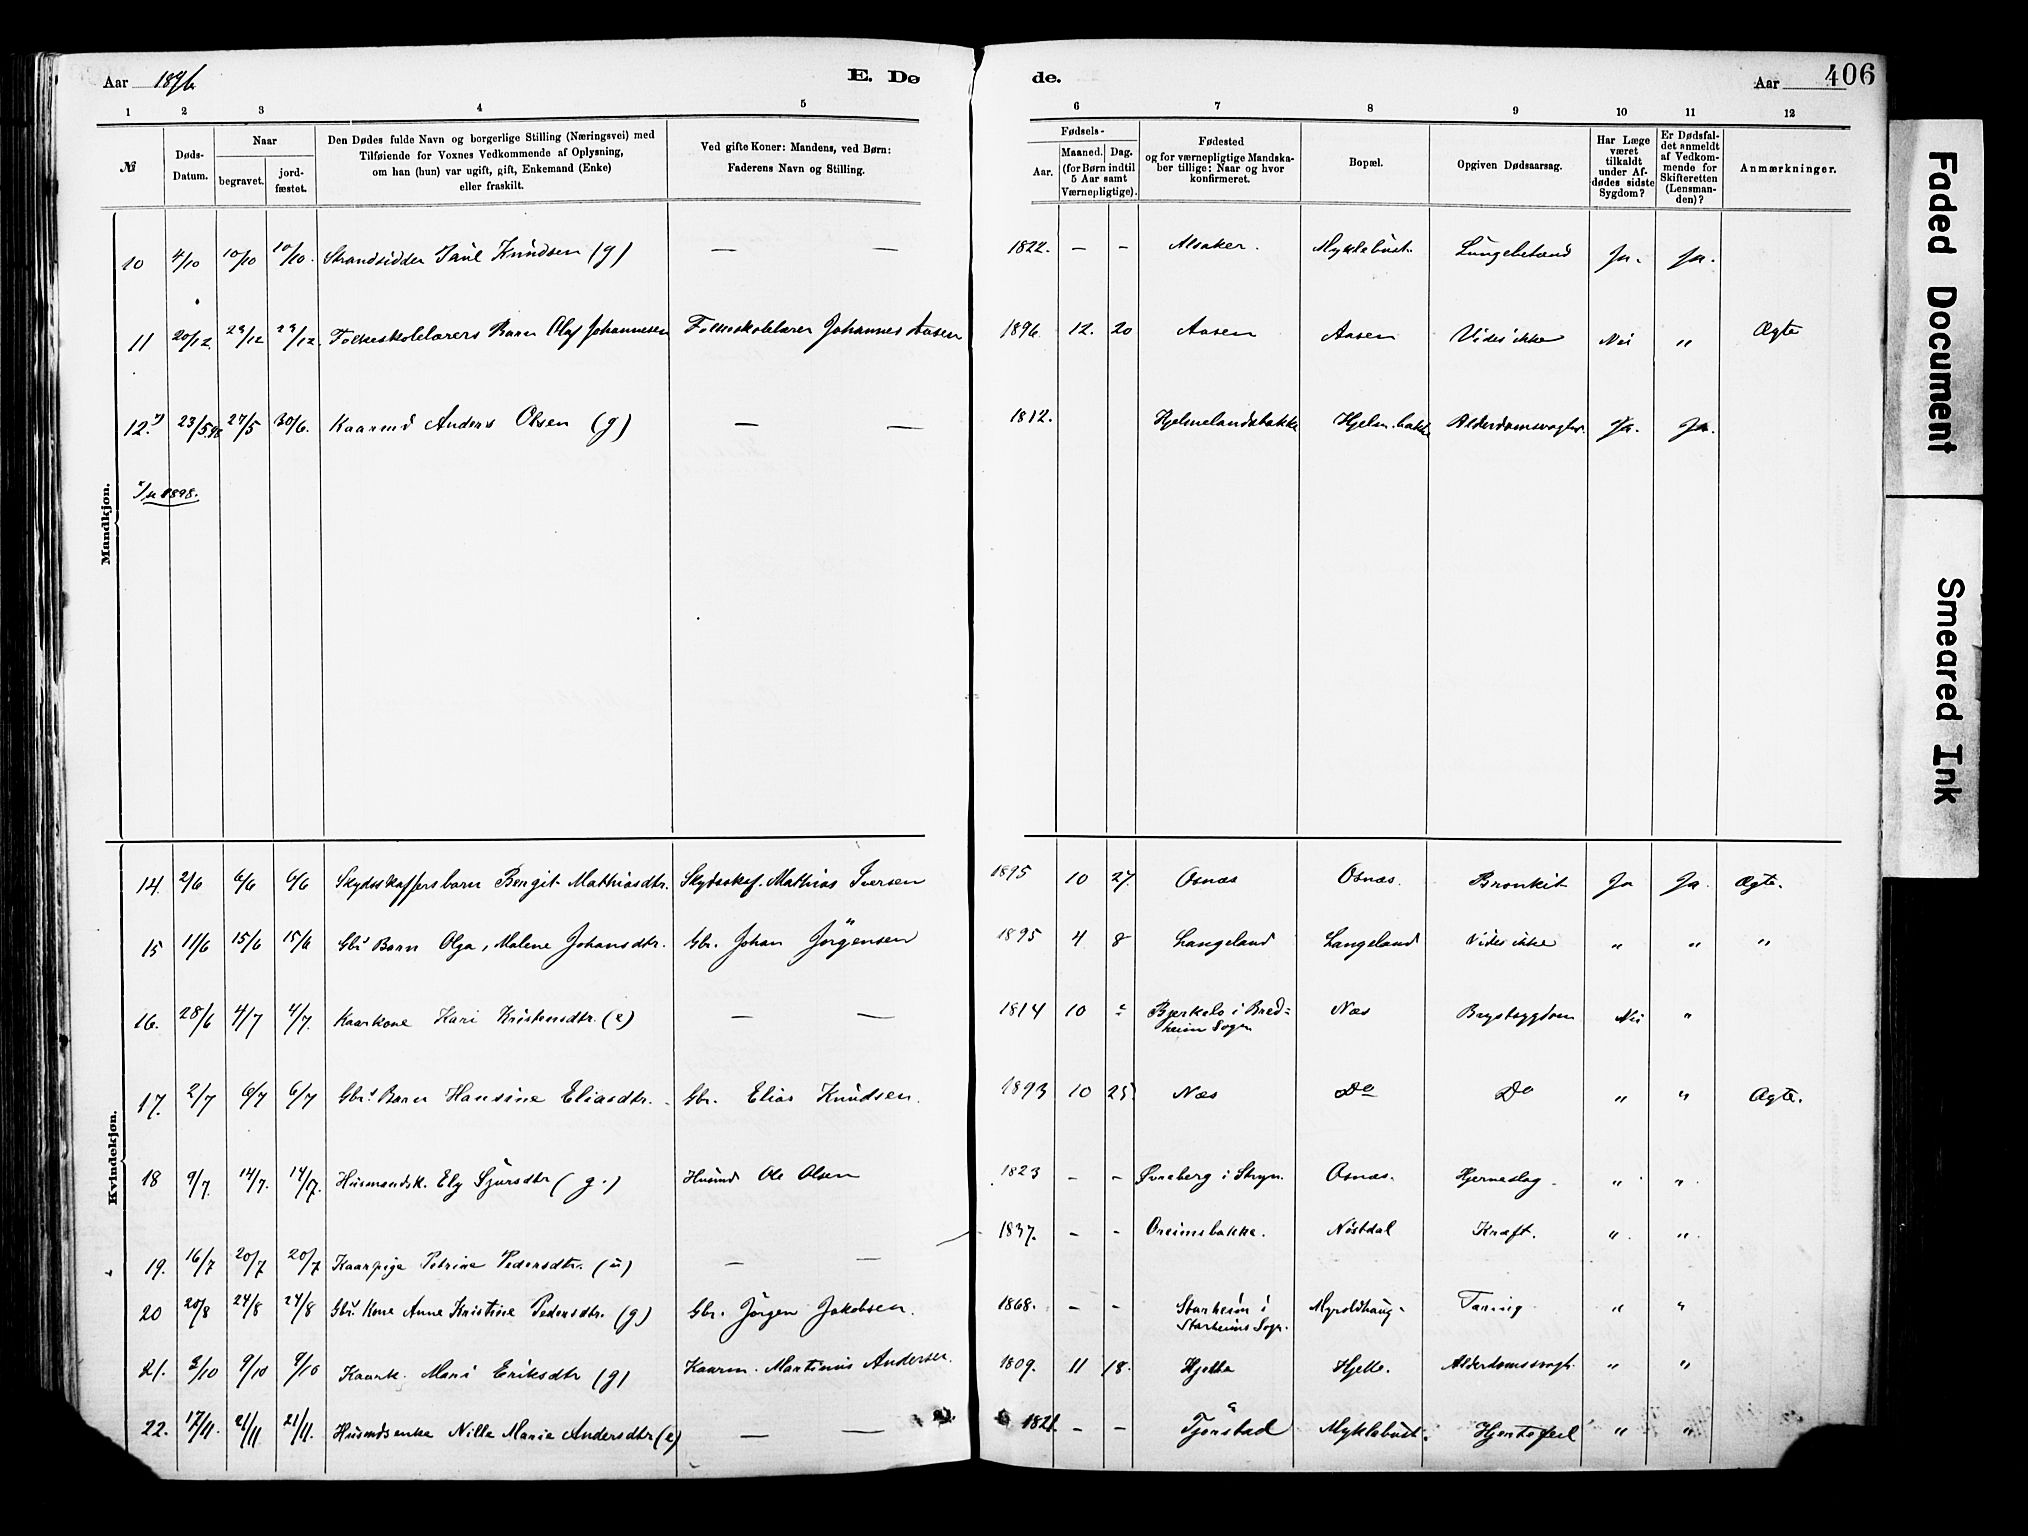 Aar 1896 E. Dø de. Aar 406
1 2 3 4 5 6 7 8 9 10 11 12
№ Døds-Datum. Naar begravet. jord-fæstet.
Den Dødes fulde Navn og borgerlige Stilling (Næringsvei) med
Tilføiende for Voxnes Vedkommende af Oplysning,
om han (hun) var ugift, gift, Enkemand (Enke)
eller fraskilt.
Ved gifte Koner: Mandens, ved Børn:
Faderens Navn og Stilling.
Fødsels-
Aar. Maaned. Dag.
(for Børn indtil
5 Aar samt
Værnepligtige).
Fødested
og for værnepligtige Mandska-
ber tillige: Naar og hvor
konfirmeret.
Bopæl.
Opgiven Dødsaarsag.
Har Læge
været
tilkaldt
under Af-
dødes sidste
Sygdom?
Er Dødsfal-
det anmeldt
af Vedkom-
mende for
Skifteretten
(Lensman-
den)?
Anmærkninger.
Mandkjøn.
10 4/10 10/10 10/10. Strandsidder Paul Knudsen (g) — — 1822. – – Alsaker. Myklebust. Lungebetænd Ja. Ja.
11 20/12 29/12 29/12. Folkeskolelærers Barn Olaf Johannesen Folkeskolelærer Johannes Aasen 1896 12. 20 Aasen Aasen Vides ikke Nei " Ægte
12. 23/5 98 27/5 30/6. Kaarmd Anders Olsen (g) — — 1812. Hjelmelandsbakke Hjelm.bakke Alderdomssvaghd. Ja. Ja.
1898.
Kvindekjøn.
14. 2/6 6/6 6/6 Skydsskaffersbarn Bergit Mathiasdtr. Skydsskaf. Mathias Iversen 1895 10 27. Osnæs Osnæs. Bronkit Ja Ja. Ægte.
15 11/6 15/6 15/6 Gbrs Barn Olga, Malene Johansdtr. Gbr. Johan Jörgensen 1895 4 8 Langeland Langeland Vides ikke " " "
16. 28/6 4/7 4/7. Kaarkone Kari Kristensdtr. (e) — — 1814 10 – Bjerkelo i Bred=
heim Sogn Næs Brystsygdom Nei "
17. 2/7 6/7 6/7 Gbrs Barn Hansine Eliasdtr. Gbr. Elias Knudsen. 1893 10 25 Næs Do Do " " Ægte.
18 9/7. 14/7. 14/7. Husmandsk. Ely Sjursdtr (g.) Husmd Ole Olsen 1823 – – Øvreberg i Stryn. Osnæs. Hjerneslag " "
19. 16/7 20/7 20/7 Kaarpige Petrine Pedersdtr. (u) — — 1837. – – Oreimsbakke. Nöstdal Kræft. " "
20 20/8 24/8 24/8 Gbrs Kone Anne Kristine Pedersdtr. (g) Gbr. Jörgen Jakobsen. 1868. – – Starheim i
Starheims Sogn. Myroldhaug Tæring " "
21. 3/10 9/10 9/10 Kaark. Mari Eriksdtr (g) Kaarm. Martinus Andersen. 1809. 11 18. Hjelle Hjelle. Alderdomssvagh. " "
22. 17/11. 21/11 21/11. Husmdsenke Nille Marie Andersdtr (e) — — 1821. – – Tjönstad Myklebust. Hjertefeil " "
Faded Document
Smeared Ink